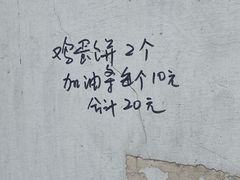 鸡蛋饼2个
加油条每个10元
合计20元